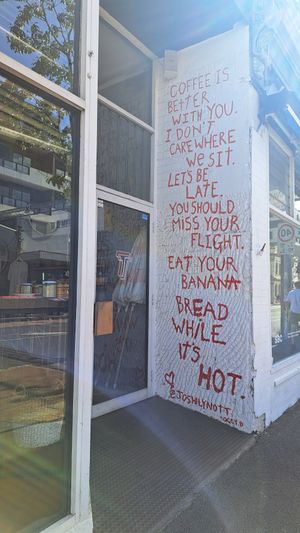 COFFEE IS
BETTER
WITH YOU.
I DON'T
CARE WHERE
We SIT.
LETS BE
LATE.
YOU SHOULD
MISS YOUR
FLIGHT.
EAT YOUR
BANANA
BREAD
WHILE
IT'S
HOT.
@JOSHLYNOTT
40